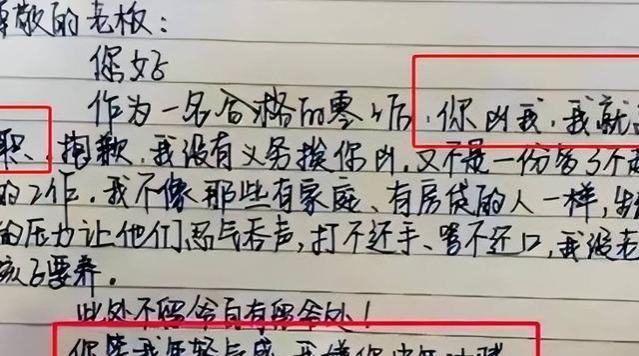 尊敬的老板：
你好
作为一名合格的零零后，你凶我，我就
职、抱歉，我没有义务挨你凶，又不是一份
的工作。我不像那些有家庭、有房贷的人一样，
的压力让他们忍气吞声，打不还手、骂不还口，我没老
孩子要养。
此处不留爷自有留爷处！
你 我年轻气盛，我嫌你